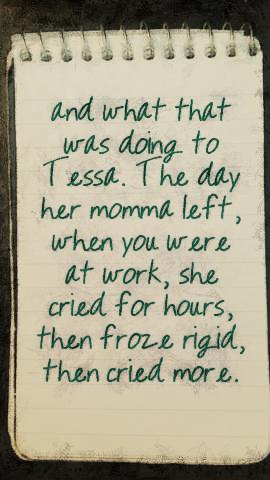 and what that
was doing to
Tessa. The day
her momma left,
when you were
at work, she
cried for hours,
then froze rigid,
then cried more.